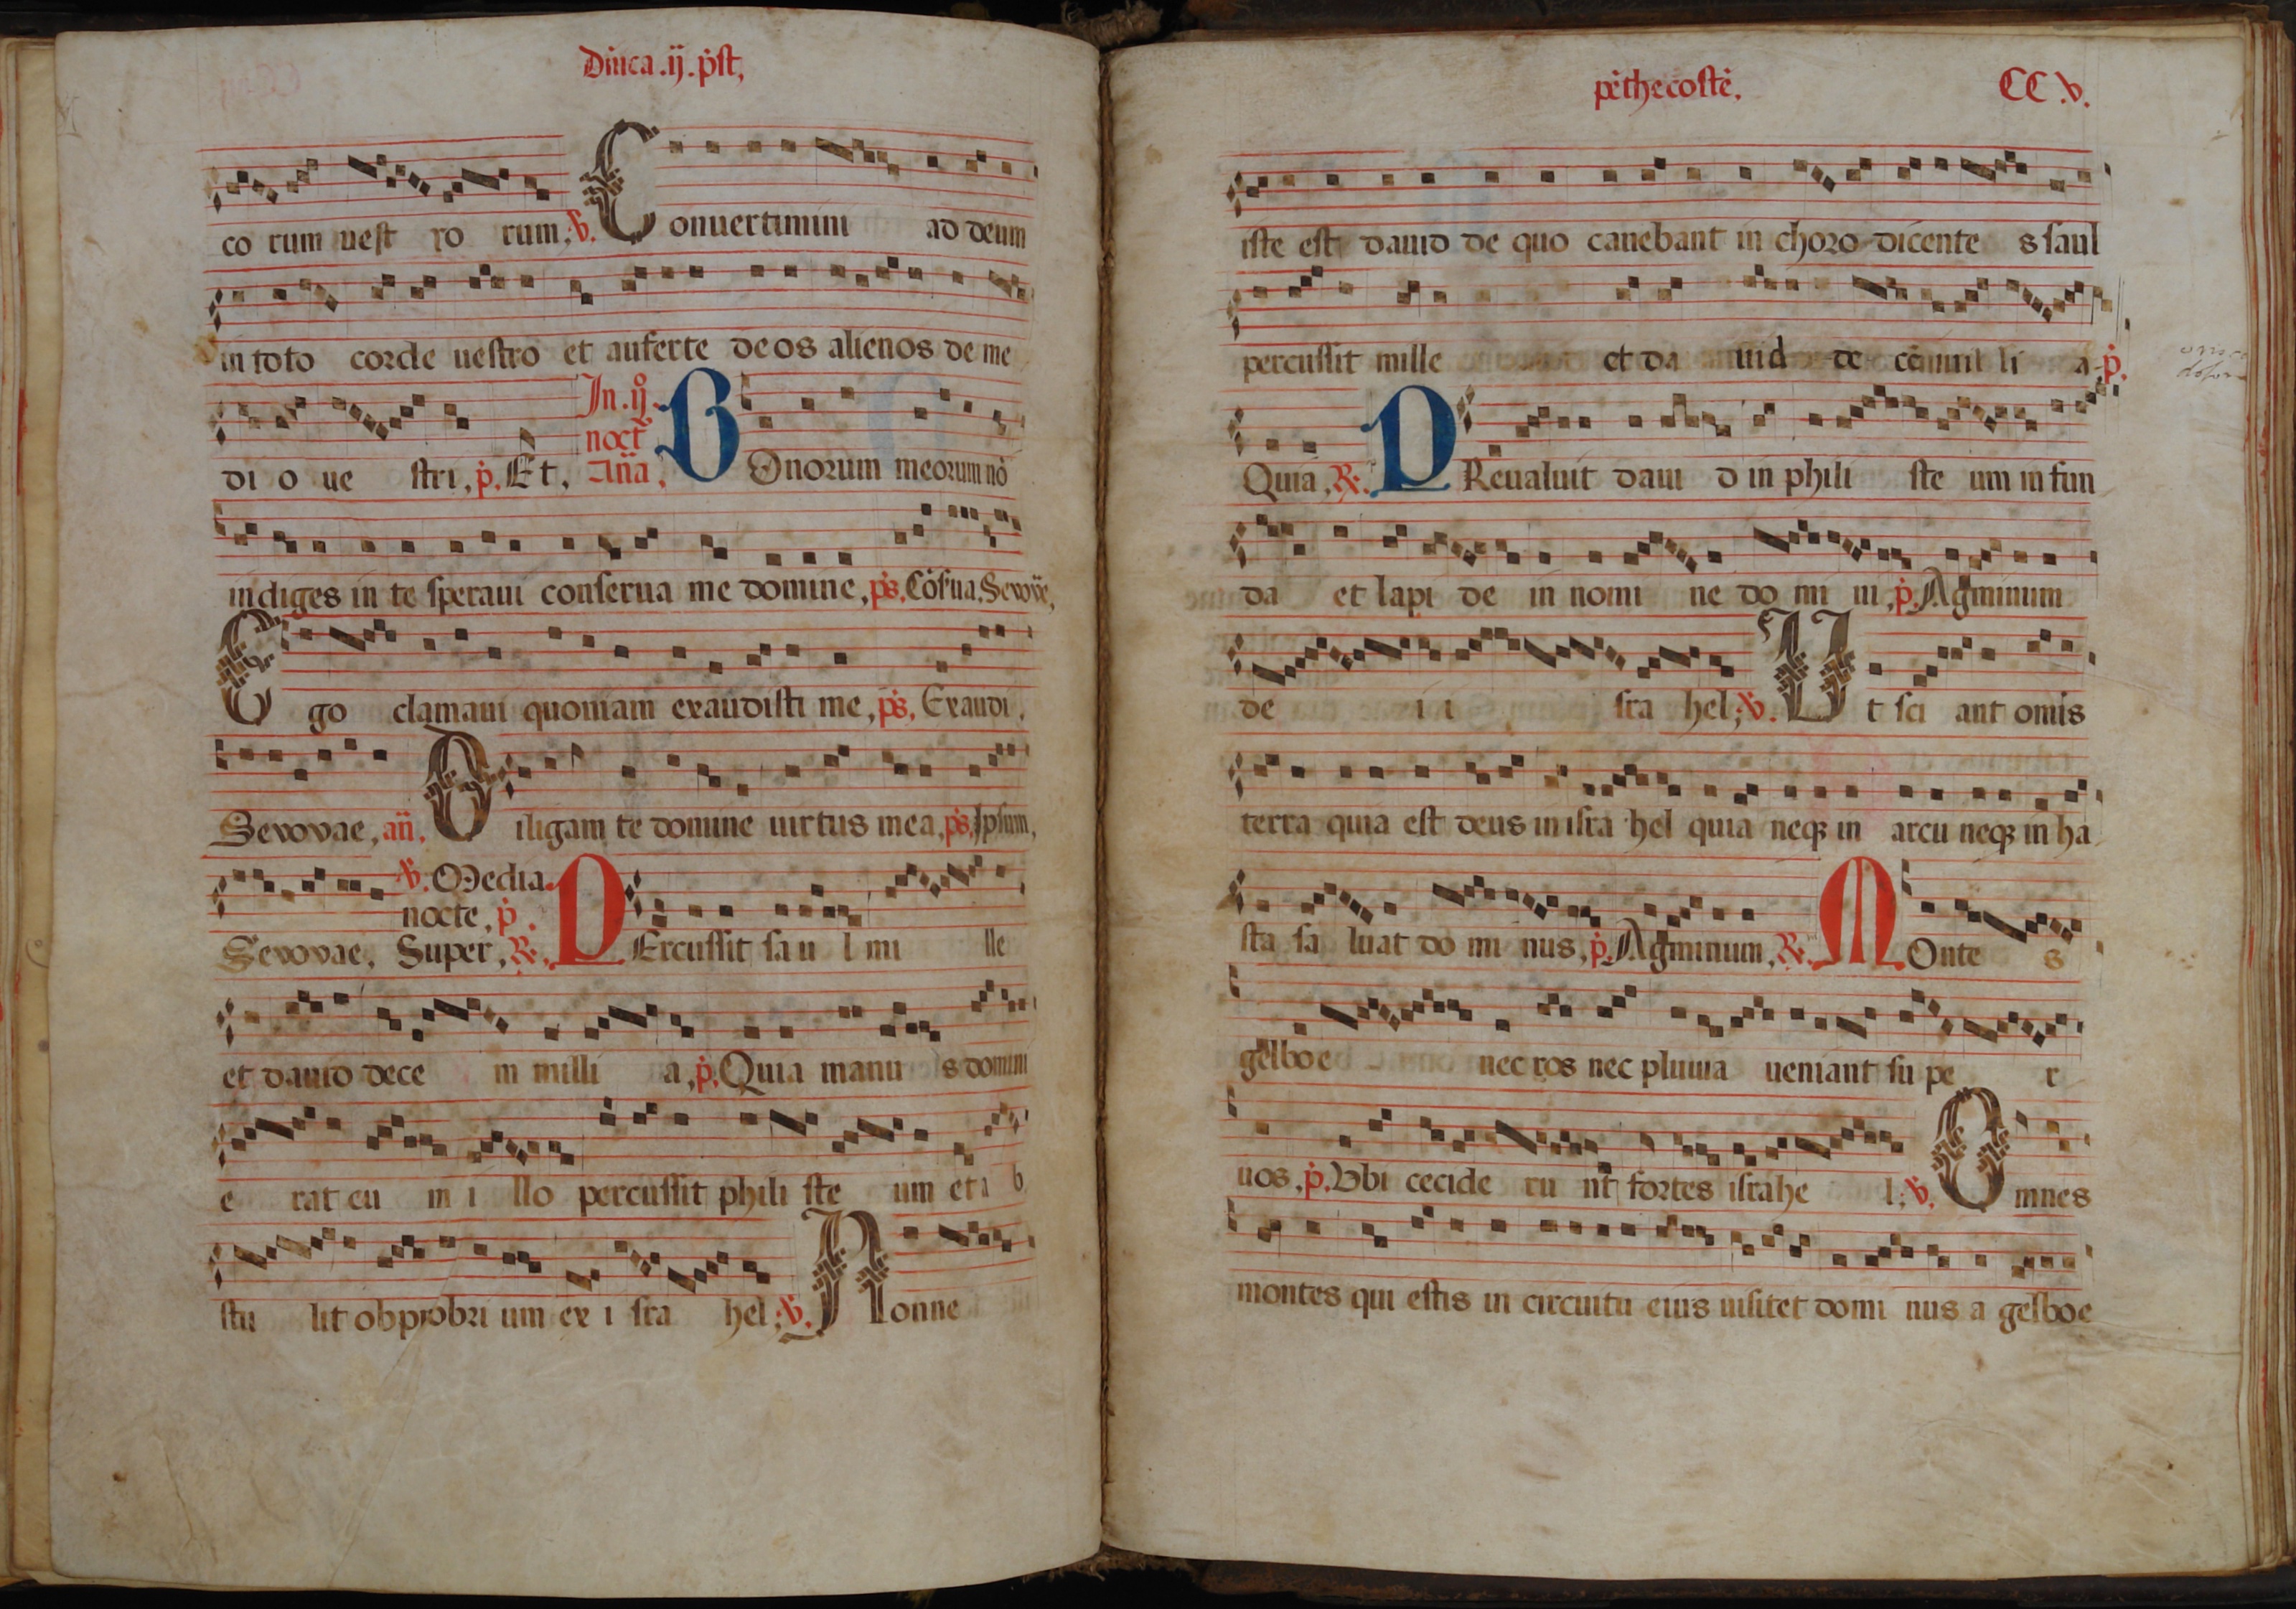 Dn̄ica .ij. pꝰst,
co rum uest ro rum, ℣. Conuertimini ad deum
in toto corde uestro et auferte deos alienos de me
di o ue stri, p̄. Et, In .ijͦ. noct̄ Añ̄a, Bonorum meorum nō
indiges in te speraui conserua me domine, ps̄. Cōs̄ua. Seuouae,
Ego clamaui quoniam exaudisti me, ps̄. Exaudi,
Seuouae, an̄. Diligam te domine uirtus mea, ps̄. Ipsum,
℣. Media
nocte, p̄.
Seuouae, Super, ℟. PErcussit sau l mi lle
et dauid dece m milli a, p̄. Quia manu s domini
e rat cu m i llo percussit phili ste um et a b
stu lit obprobri um ex i sra hel; ℣. Nonne
pēthecostē. CC.v.
iste est dauid de quo canebant in choro dicente s saul
percussit mille et da uid de cē mil li a, p̄.
Quia, ℟. PReualuit daui d in phili ste um in fun
da et lapi de in nomi ne do mi ni, p̄. Agminum
de i i sra hel; ℣. Ut sci ant om̄is
terra quia est deus in isra hel quia neqꝫ in arcu neqꝫ in ha
sta sa luat do mi nus, p̄. Agminum, ℟. MOnte s
gelboe nec ros nec pluuia ueniant su pe r
uos, p̄. Vbi cecide ru nt fortes israhe l; ℣. Omnes
montes qui estis in circuitu eius uisitet domi nus a gelboe